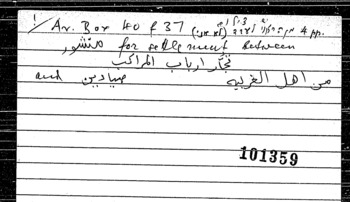 Ar. Box 40 f 37 4 pp.
منشور for settlement between
تجار ارباب المراكب
and صيادين من اهل الغربيه
101359